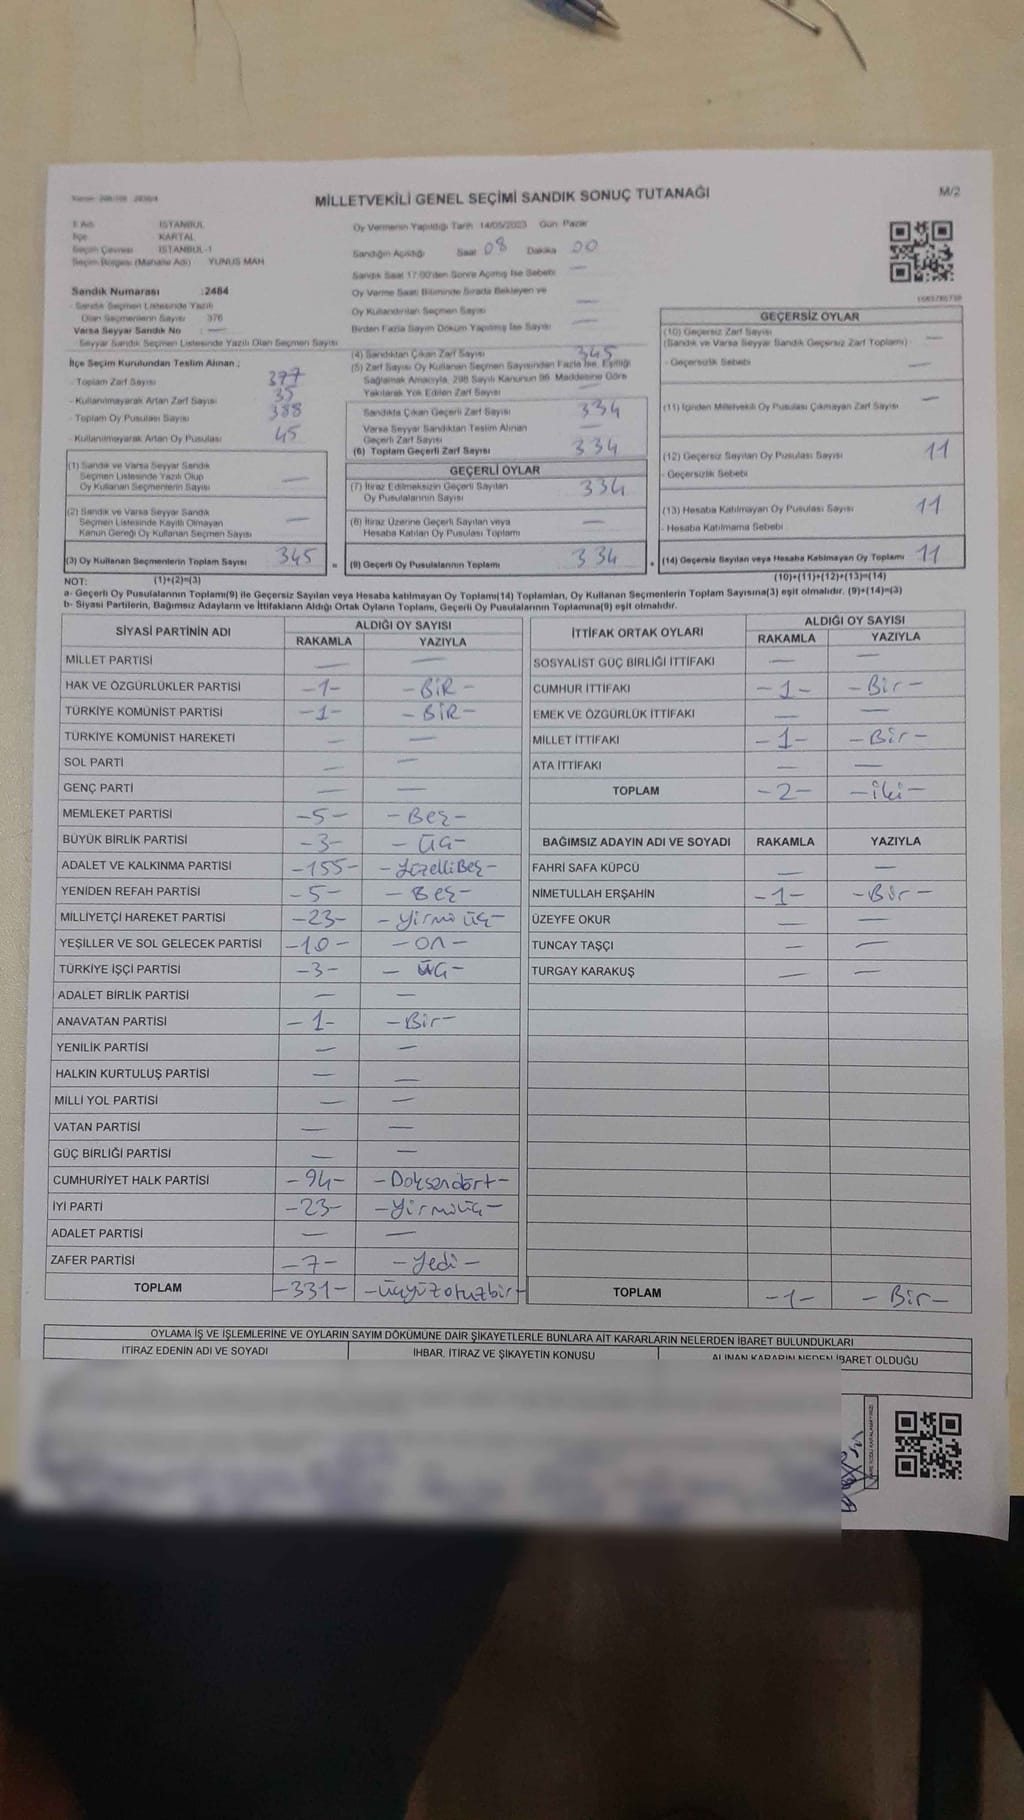 MİLLETVEKİLİ GENEL SEÇİMİ SANDIK SONUÇ TUTANAĞI
M/2
İl Adı İSTANBUL
İlçe KARTAL
Seçim Çevresi İSTANBUL-1
Seçim Bölgesi (Mahalle Adı) YUNUS MAH
Sandık Numarası :2484
- Sandık Seçmen Listesinde Yazılı
Olan Seçmenlerin Sayısı 376
Varsa Seyyar Sandık No : —
- Seyyar Sandık Seçmen Listesinde Yazılı Olan Seçmen Sayısı
İlçe Seçim Kurulundan Teslim Alınan ;
- Toplam Zarf Sayısı 377
- Kullanılmayarak Artan Zarf Sayısı 35
- Toplam Oy Pusulası Sayısı 388
- Kullanılmayarak Artan Oy Pusulası 45
(1) Sandık ve Varsa Seyyar Sandık
Seçmen Listesinde Yazılı Olup
Oy Kullanan Seçmenlerin Sayısı —
(2) Sandık ve Varsa Seyyar Sandık
Seçmen Listesinde Kayıtlı Olmayan
Kanun Gereği Oy Kullanan Seçmen Sayısı —
(3) Oy Kullanan Seçmenlerin Toplam Sayısı 345
Oy Vermenin Yapıldığı Tarih 14/05/2023 Gün Pazar
Sandığın Açıldığı Saat 08 Dakika 00
Sandık Saat 17:00'den Sonra Açılmış İse Sebebi —
Oy Verme Saati Bitiminde Sırada Bekleyen ve
Oy Kullandırılan Seçmen Sayısı —
Birden Fazla Sayım Döküm Yapılmış İse Sayısı —
(4) Sandıktan Çıkan Zarf Sayısı 345
(5) Zarf Sayısı Oy Kullanan Seçmen Sayısından Fazla İse, Eşitliği
Sağlamak Amacıyla, 298 Sayılı Kanunun 98. Maddesine Göre
Yakılarak Yok Edilen Zarf Sayısı —
Sandıkta Çıkan Geçerli Zarf Sayısı 334
Varsa Seyyar Sandıktan Teslim Alınan
Geçerli Zarf Sayısı —
(6) Toplam Geçerli Zarf Sayısı 334
GEÇERLİ OYLAR
(7) İtiraz Edilmeksizin Geçerli Sayılan
Oy Pusulalarının Sayısı 334
(8) İtiraz Üzerine Geçerli Sayılan veya
Hesaba Katılan Oy Pusulası Toplamı —
= (9) Geçerli Oy Pusulalarının Toplamı 334
GEÇERSİZ OYLAR
(10) Geçersiz Zarf Sayısı
(Sandık ve Varsa Seyyar Sandık Geçersiz Zarf Toplamı) —
- Geçersizlik Sebebi —
(11) İçinden Milletvekili Oy Pusulası Çıkmayan Zarf Sayısı —
(12) Geçersiz Sayılan Oy Pusulası Sayısı 11
- Geçersizlik Sebebi
(13) Hesaba Katılmayan Oy Pusulası Sayısı 11
- Hesaba Katılmama Sebebi
+ (14) Geçersiz Sayılan veya Hesaba Katılmayan Oy Toplamı 11
NOT: (1)+(2)=(3) (10)+(11)+(12)+(13)=(14)
a- Geçerli Oy Pusulalarının Toplamı(9) ile Geçersiz Sayılan veya Hesaba katılmayan Oy Toplamı(14) Toplamları, Oy Kullanan Seçmenlerin Toplam Sayısına(3) eşit olmalıdır. (9)+(14)=(3)
b- Siyasi Partilerin, Bağımsız Adayların ve İttifakların Aldığı Ortak Oyların Toplamı, Geçerli Oy Pusulalarının Toplamına(9) eşit olmalıdır.
SİYASİ PARTİNİN ADI ALDIĞI OY SAYISI
RAKAMLA YAZIYLA
MİLLET PARTİSİ — —
HAK VE ÖZGÜRLÜKLER PARTİSİ -1- -BİR-
TÜRKİYE KOMÜNİST PARTİSİ -1- -BİR-
TÜRKİYE KOMÜNİST HAREKETİ — —
SOL PARTİ — —
GENÇ PARTİ — —
MEMLEKET PARTİSİ -5- -Beş-
BÜYÜK BİRLİK PARTİSİ -3- -Üç-
ADALET VE KALKINMA PARTİSİ -155- -YüzelliBeş-
YENİDEN REFAH PARTİSİ -5- -Beş-
MİLLİYETÇİ HAREKET PARTİSİ -23- -Yirmi üç-
YEŞİLLER VE SOL GELECEK PARTİSİ -10- -On-
TÜRKİYE İŞÇİ PARTİSİ -3- -üç-
ADALET BİRLİK PARTİSİ — —
ANAVATAN PARTİSİ -1- -Bir-
YENİLİK PARTİSİ — —
HALKIN KURTULUŞ PARTİSİ — —
MİLLİ YOL PARTİSİ — —
VATAN PARTİSİ — —
GÜÇ BİRLİĞİ PARTİSİ — —
CUMHURİYET HALK PARTİSİ -94- -Doksandört-
İYİ PARTİ -23- -Yirmiüç-
ADALET PARTİSİ — —
ZAFER PARTİSİ -7- -Yedi-
TOPLAM -331- -üçyüzotuzbir-
İTTİFAK ORTAK OYLARI ALDIĞI OY SAYISI
RAKAMLA YAZIYLA
SOSYALİST GÜÇ BİRLİĞİ İTTİFAKI — —
CUMHUR İTTİFAKI -1- -Bir-
EMEK VE ÖZGÜRLÜK İTTİFAKI — —
MİLLET İTTİFAKI -1- -Bir-
ATA İTTİFAKI — —
TOPLAM -2- -iki-
BAĞIMSIZ ADAYIN ADI VE SOYADI RAKAMLA YAZIYLA
FAHRİ SAFA KÜPCÜ — —
NİMETULLAH ERŞAHİN -1- -Bir-
ÜZEYFE OKUR — —
TUNCAY TAŞÇI — —
TURGAY KARAKUŞ — —
TOPLAM -1- -Bir-
OYLAMA İŞ VE İŞLEMLERİNE VE OYLARIN SAYIM DÖKÜMÜNE DAİR ŞİKAYETLERLE BUNLARA AİT KARARLARIN NELERDEN İBARET BULUNDUKLARI
İTİRAZ EDENİN ADI VE SOYADI İHBAR, İTİRAZ VE ŞİKAYETİN KONUSU ALINAN KARARIN NEDEN İBARET OLDUĞU